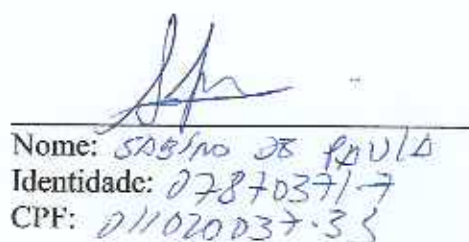 Nome: SABINO DE PAULA
Identidade: 07870371-7
CPF: 011020037-33